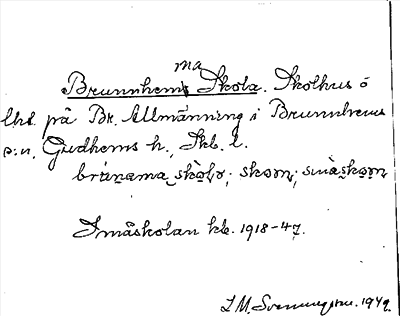 ma
Brunnhems Skola. Skolhus o
lht. på Br. Allmänning i Brunnhems
s:n, Gudhems h., Skb. l.
brùnama skòlơ; skơm; småskơm
Småskolan kb. 1918-47.
I. M. Svenungsson. 1949.